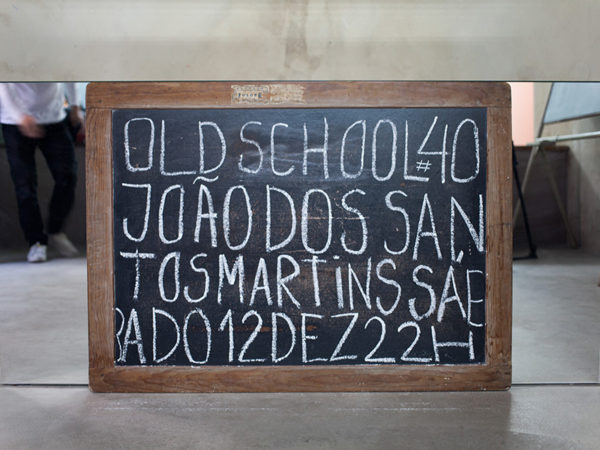 OLD SCHOOL #40
JOÃO DOS SAN
TOS MARTINS SÁE
BADO 12 DEZ 22H